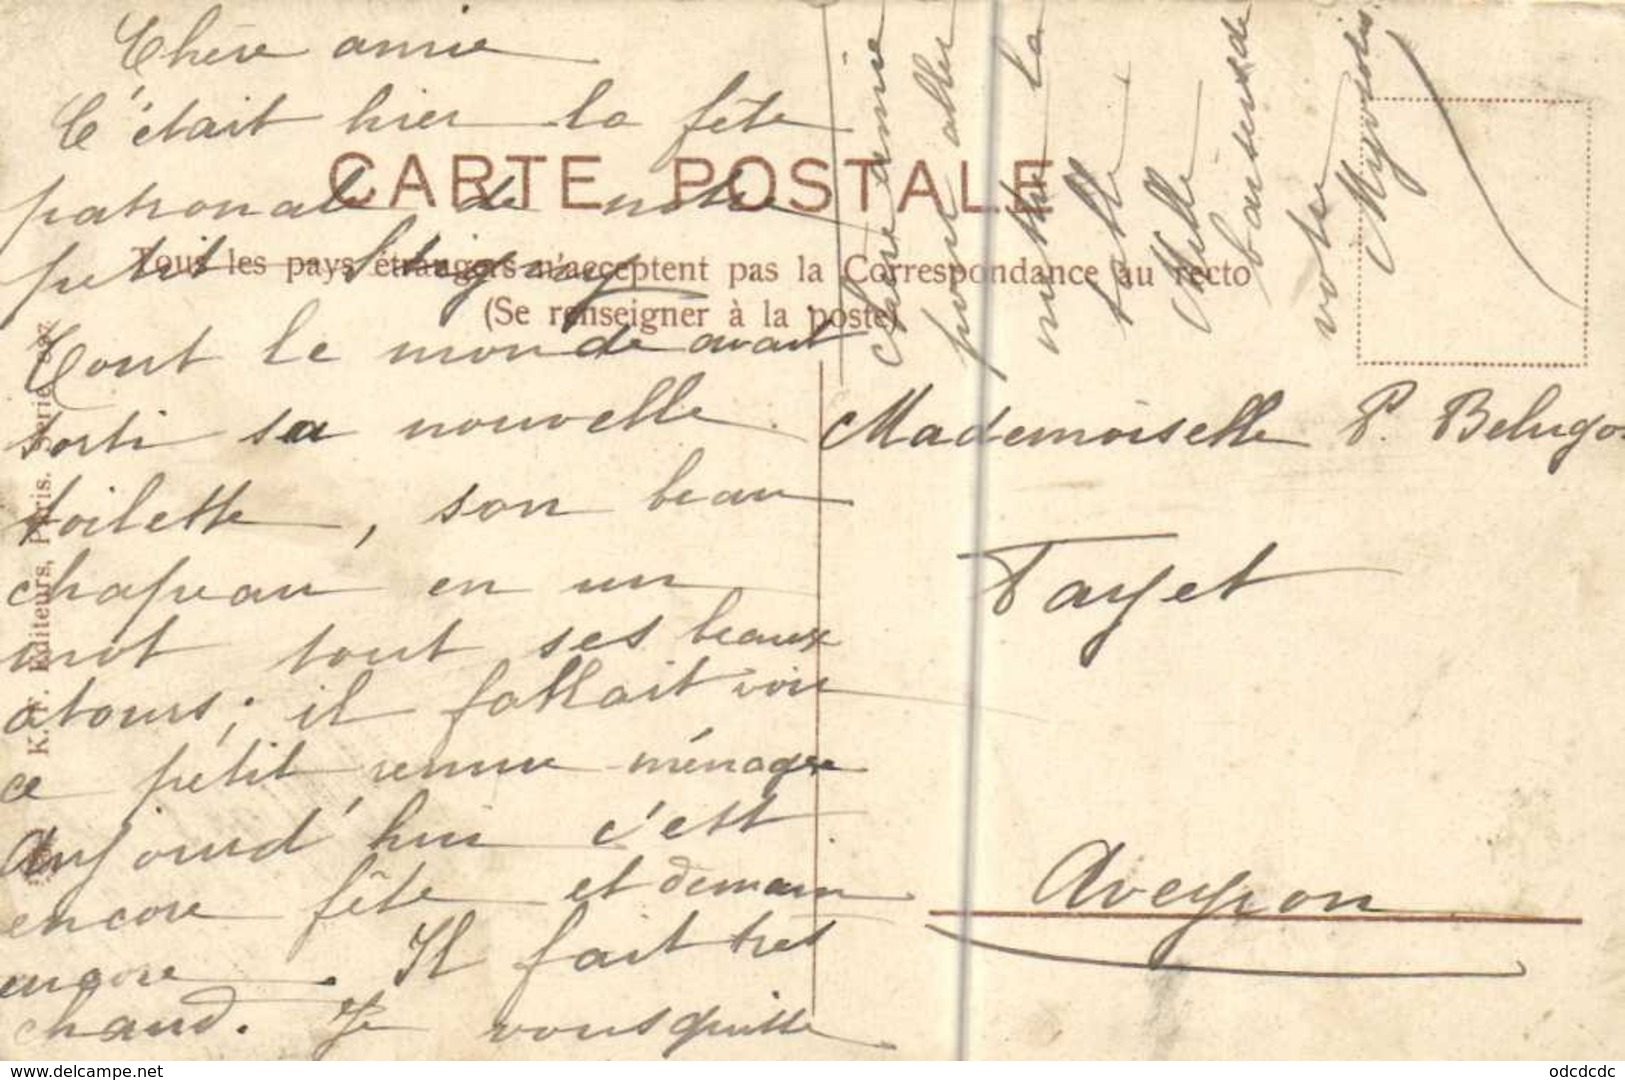 Chère amie
C'était hier la fête
CARTE POSTALE
patronale de notre
Tous les pays étrangers n'acceptent pas la Correspondance au recto
(Se renseigner à la poste)
petit
Tout le monde avait
sorti sa nouvelle
toilette, son beau
chapeau en un
mot tout ses beaux
atours; il fallait voir
ce petit remue ménage
Aujourd'hui c'est
encore fête et demain
encore. Il fait très
chaud. Je vous quitte
chère amie
pour aller
mettre la
table
Mille
baisers de
votre
Myosotis
Mademoiselle P. Belugo
Fayet
Aveyron
K. F. Editeurs, Paris. Série
delcampe.net
odcdcdc